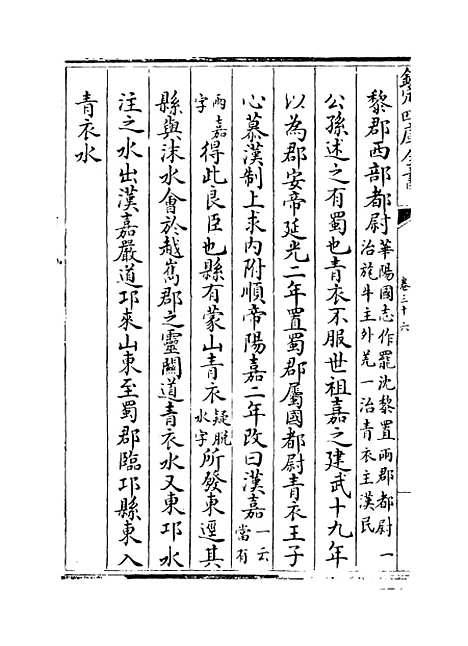 欽定四庫全書
卷三十六
黎郡西部都尉華陽國志作罷沈黎置兩郡都尉一治旄牛主外羌一治青衣主漢民
公孫述之有蜀也青衣不服世祖嘉之建武十九年
以為郡安帝延光二年置蜀郡屬國都尉青衣王子
心慕漢制上求內附順帝陽嘉二年改曰漢嘉一云當有
兩嘉字得此良臣也縣有蒙山青衣疑脫水字所發東逕其
縣與沫水會於越嶲郡之靈關道青衣水又東邛水
注之水出漢嘉嚴道邛來山東至蜀郡臨邛縣東入
青衣水